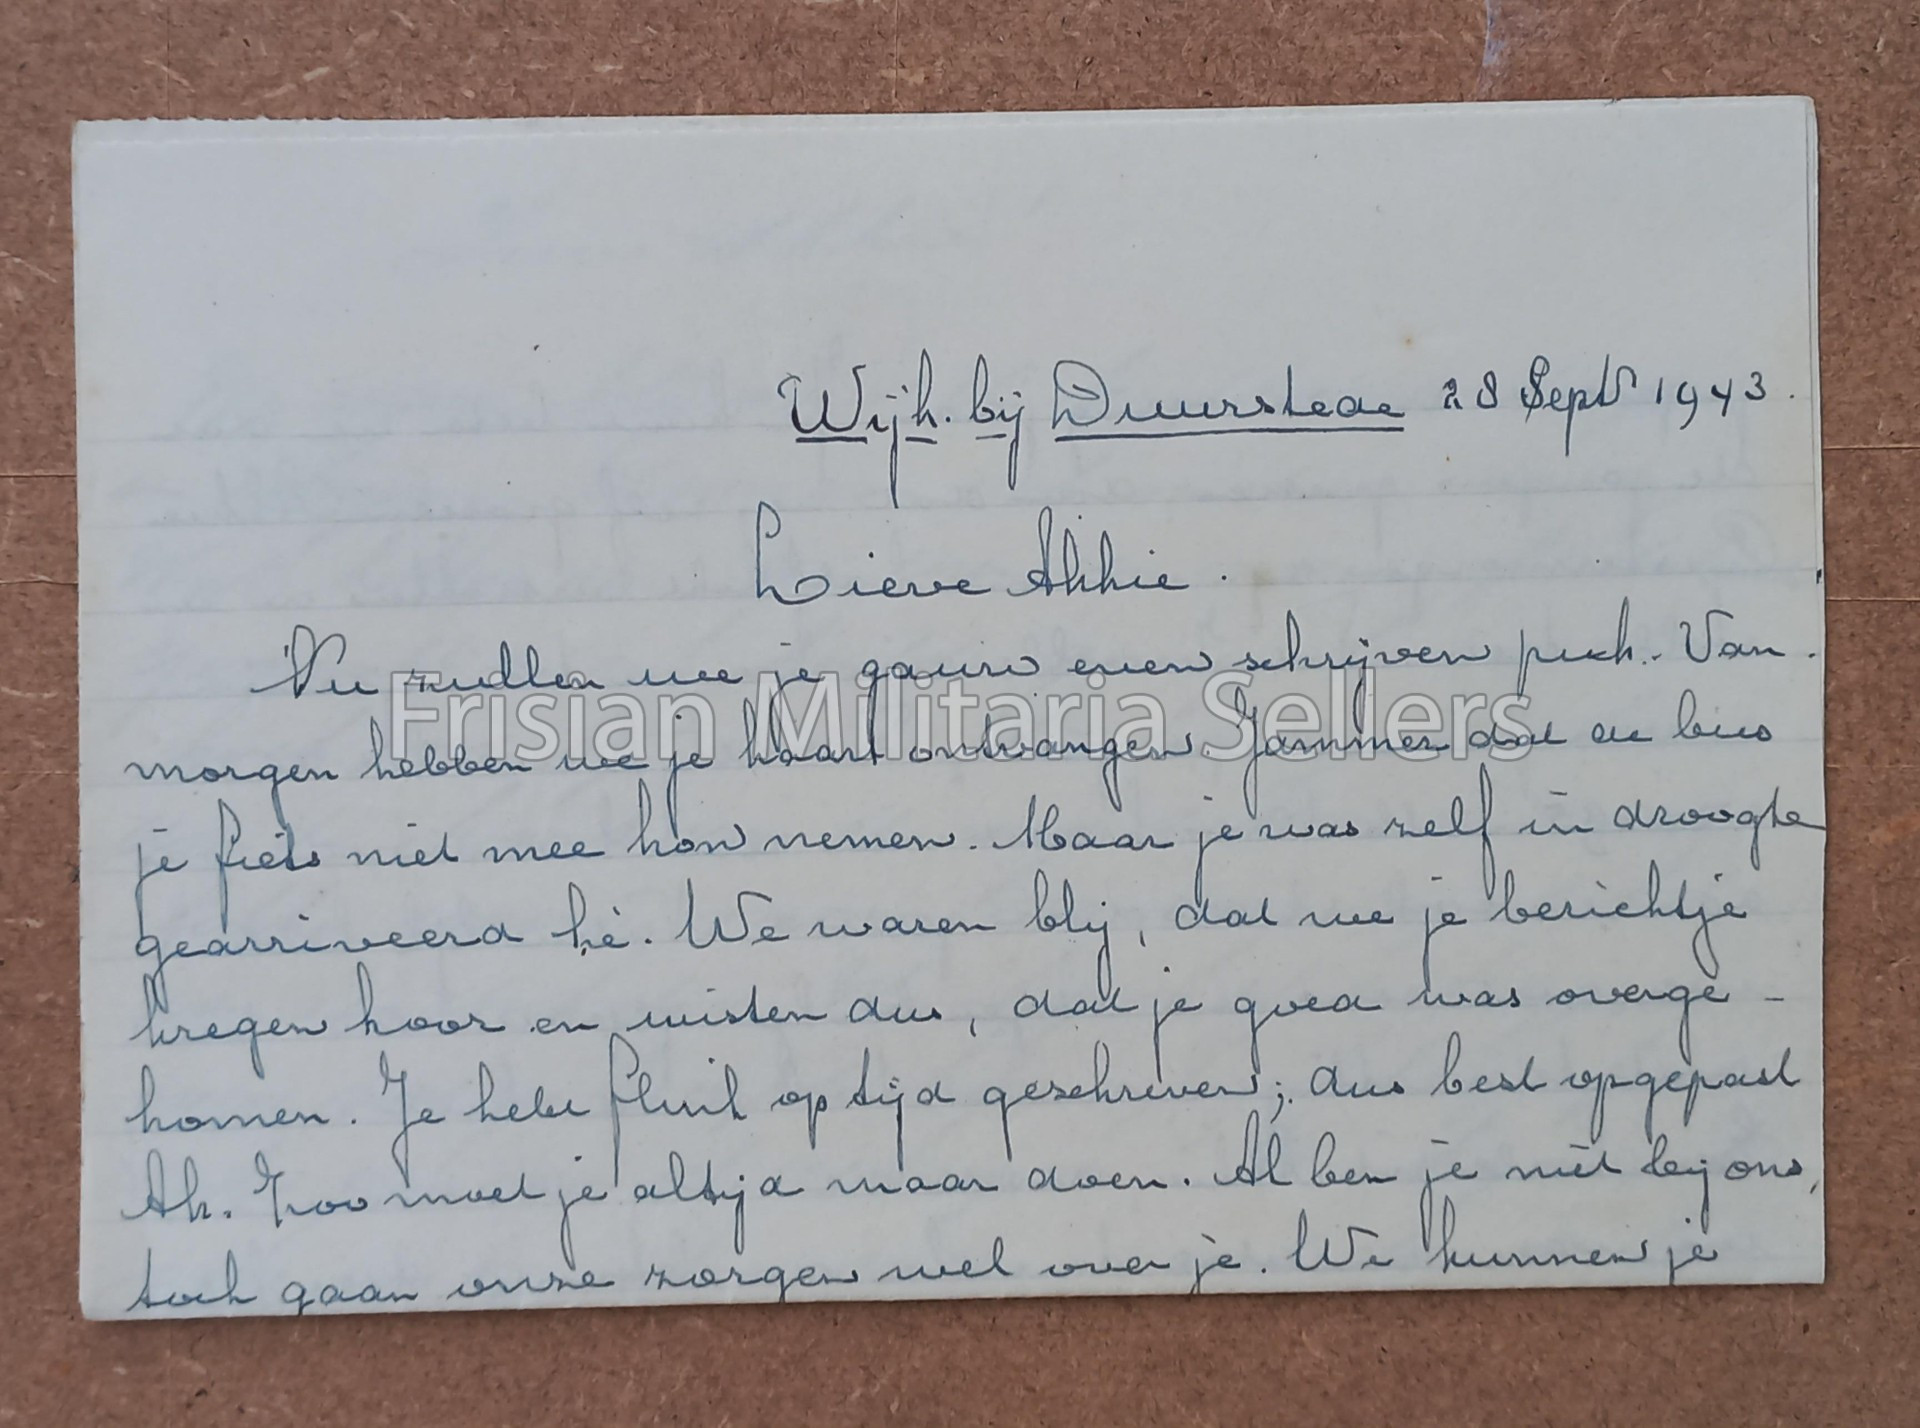 Wijk. bij Duurstede 28 Sept 1943.
Lieve Akkie.
Nu zullen we je gauw even schrijven puck. Van.
morgen hebben we je kaart ontvangen. Jammer dat de bus
je fiets niet mee kon nemen. Maar je was zelf in droogte
gearriveerd hè. We waren blij, dat we je berichtje
kregen hoor en wisten dus, dat je goed was overge-
komen. Je hebt fluik op tijd geschreven; dus best opgepast
Ak. Zoo moet je altijd maar doen. Al ben je niet bij ons,
toch gaan onze zorgen wel over je. We kunnen je
Frisian Militaria Sellers